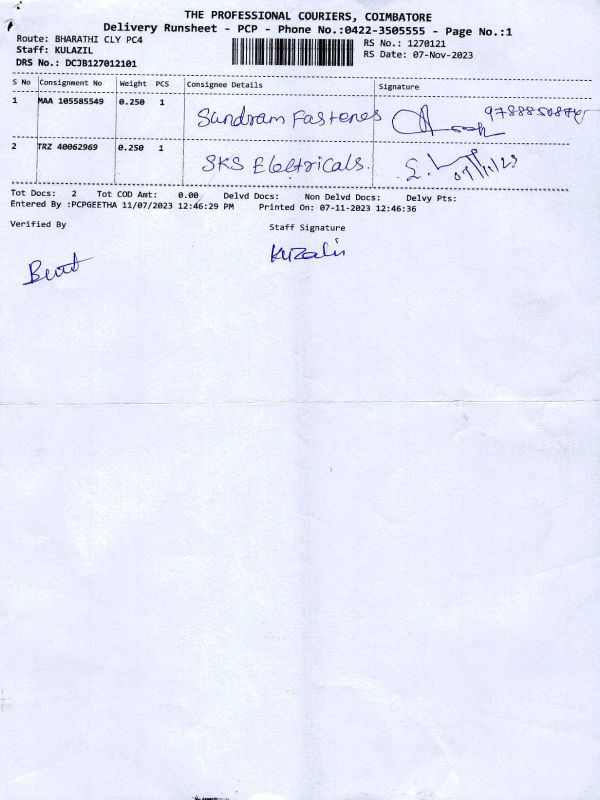 THE PROFESSIONAL COURIERS, COIMBATORE
Delivery Runsheet - PCP - Phone No.:0422-3505555 - Page No.:1
Route: BHARATHI CLY PC4
RS No.: 1270121
Staff: KULAZIL
RS Date: 07-Nov-2023
DRS No.: DCJB127012101
S No Consignment No Weight PCS Consignee Details Signature
1 MAA 105585549 0.250 1 Sundram Fastenes
2 TRZ 40062969 0.250 1 SKS Electricals.
Tot Docs: 2 Tot COD Amt: 0.00 Delvd Docs: Non Delvd Docs: Delvy Pts:
Entered By :PCPGEETHA 11/07/2023 12:46:29 PM Printed On: 07-11-2023 12:46:36
Verified By Staff Signature